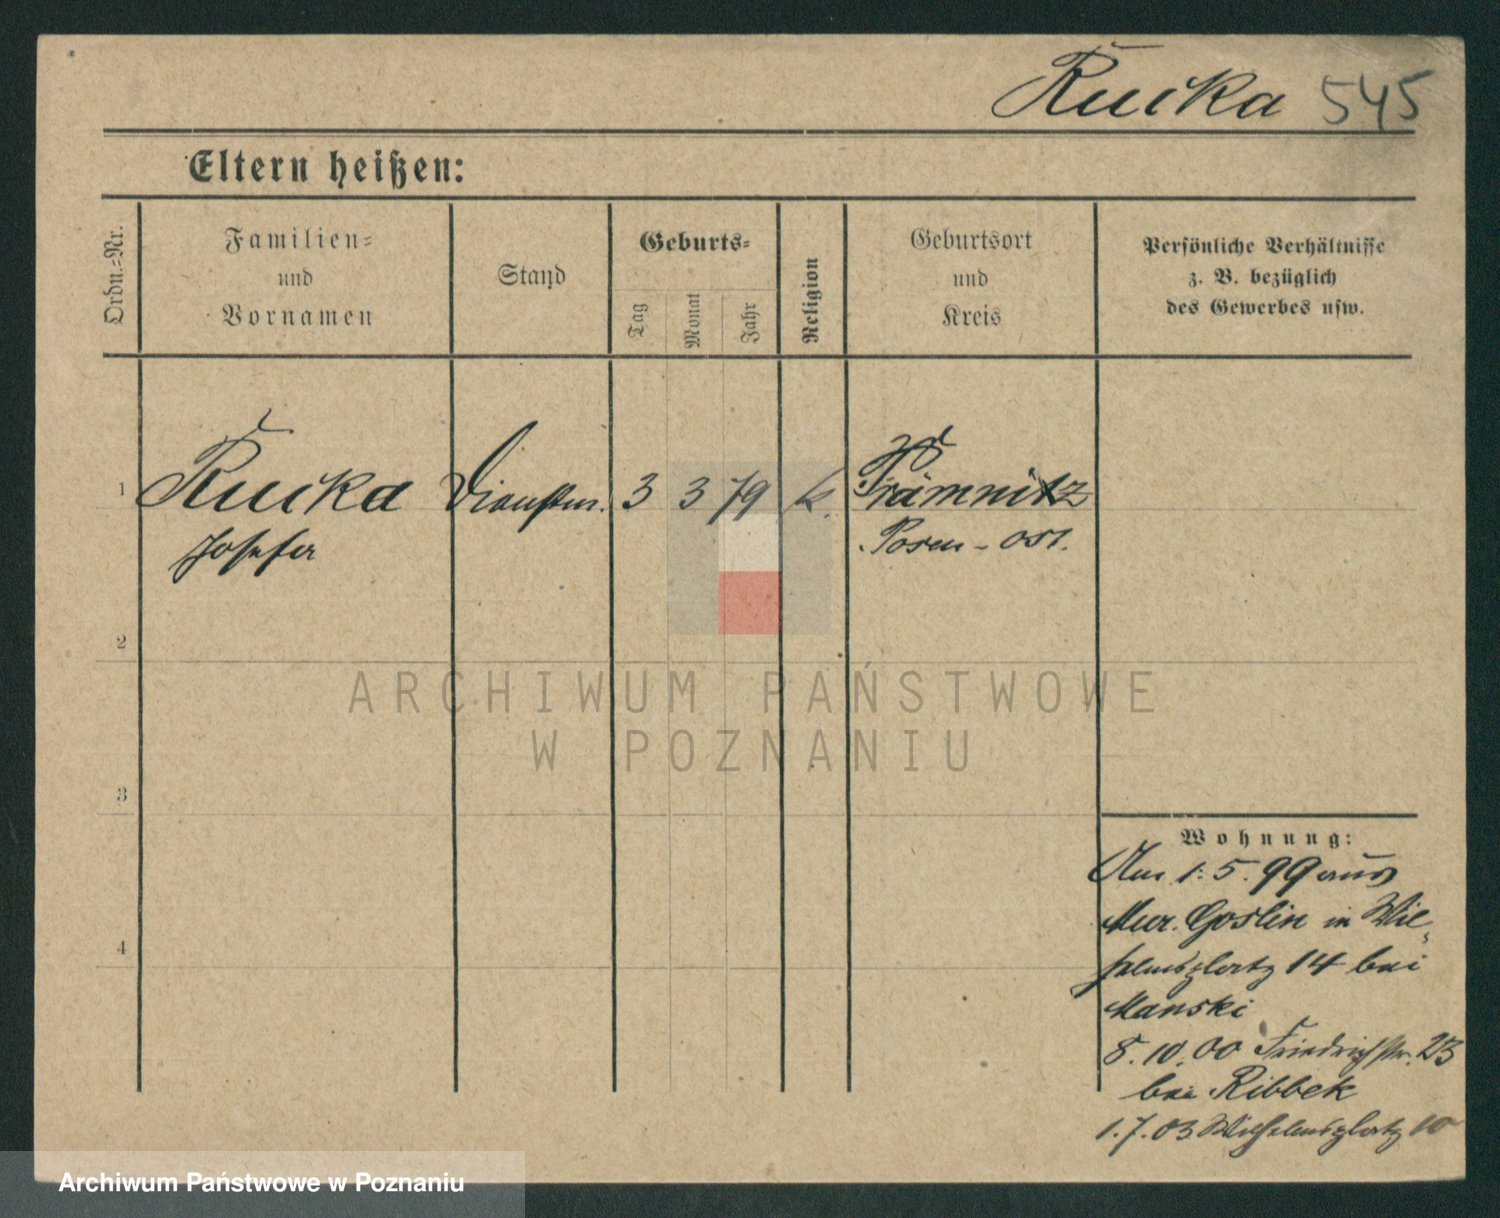 Rucka 545
Eltern heißen:
Ordn.-Nr.
Familien-
und
Vornamen
Stand
Geburts-
Tag
Monat
Jahr
Religion
Geburtsort
und
Kreis
Persönliche Verhältnisse
z. B. bezüglich
des Gewerbes usw.
1 Rucka Dienstm. 3 3 79 k. Prämnitz
Josefa Posen-Ost.
2
ARCHIWUM PAŃSTWOWE
W POZNANIU
3
4
Wohnung:
Am 1.5.99 aus
Mur. Goslin in Wil-
helmsplatz 14 bei
Manski
8.10.00 Friedrichstr. 23
bei Ribbek
1.7.03 Wilhelmsplatz 10
Archiwum Państwowe w Poznaniu